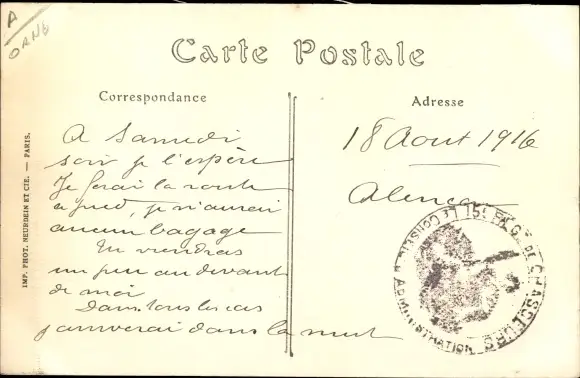 A
ORNE
Carte Postale
Correspondance
Adresse
A Samedi
soir je l'espère
Je ferai la route
a pied, je n'aurai
aucun bagage
Tu viendras
un peu au devant
de moi
Dans tous les cas
j'arriverai dans la nuit
18 Aout 1916
Alençon
LE CONSEIL D'ADMINISTRATION
15e DE CHASSEURS
IMP. PHOT. NEURDEIN ET CIE. — PARIS.